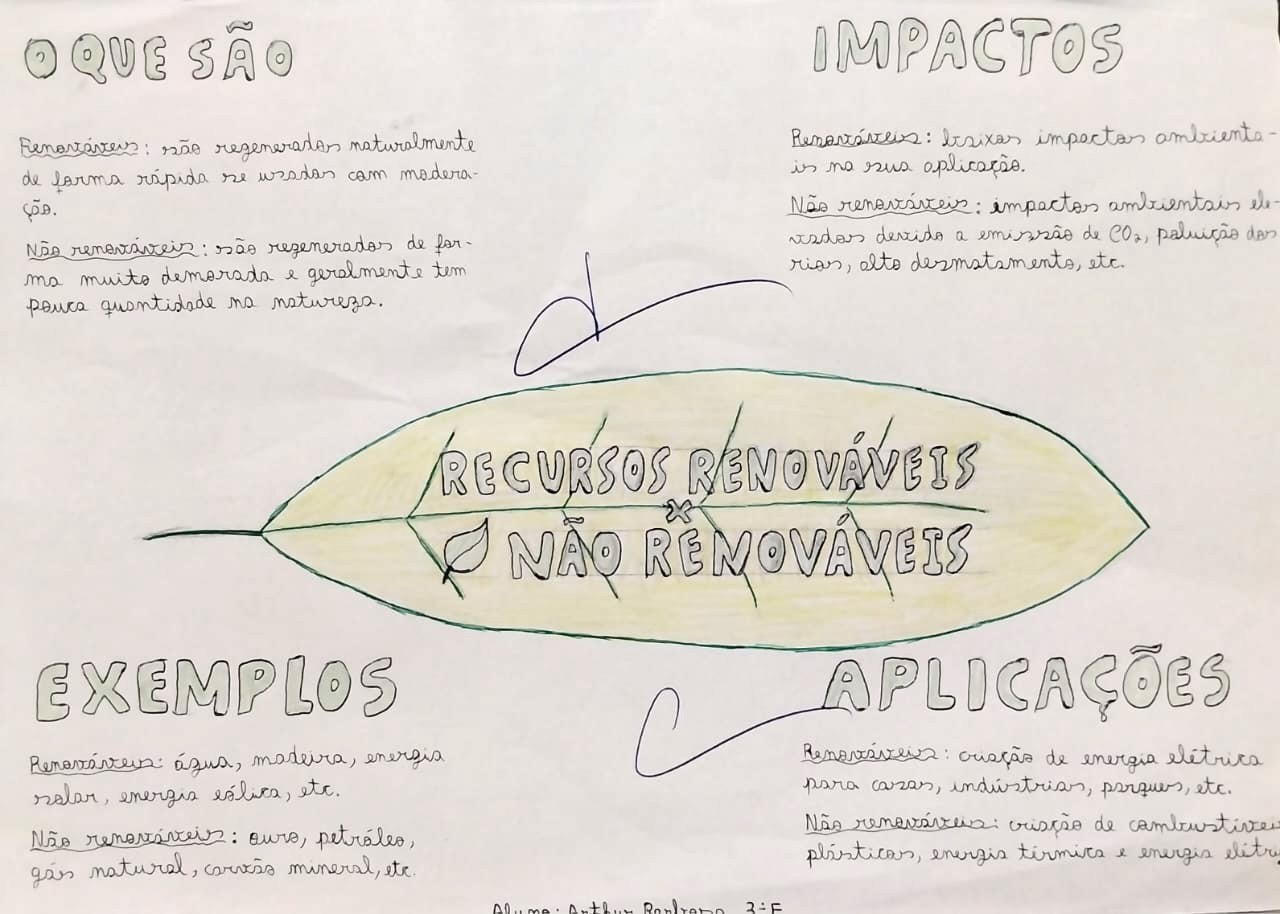 O QUE SÃO
Renováveis: são regenerados naturalmente
de forma rápida se usados com modera-
ção.
Não renováveis: são regenerados de for-
ma muito demorada e geralmente tem
pouca quantidade na natureza.
IMPACTOS
Renováveis: baixos impactos ambienta-
is na sua aplicação.
Não renováveis: impactos ambientais ele-
vados devido a emissão de CO₂, poluição dos
rios, alto desmatamento, etc.
RECURSOS RENOVÁVEIS
X
NÃO RENOVÁVEIS
EXEMPLOS
Renováveis: água, madeira, energia
solar, energia eólica, etc.
Não renováveis: ouro, petróleo,
gás natural, carvão mineral, etc.
APLICAÇÕES
Renováveis: criação de energia elétrica
para casas, indústrias, parques, etc.
Não renováveis: criação de combustíveis
plásticos, energia térmica e energia
Aluno: Arthur